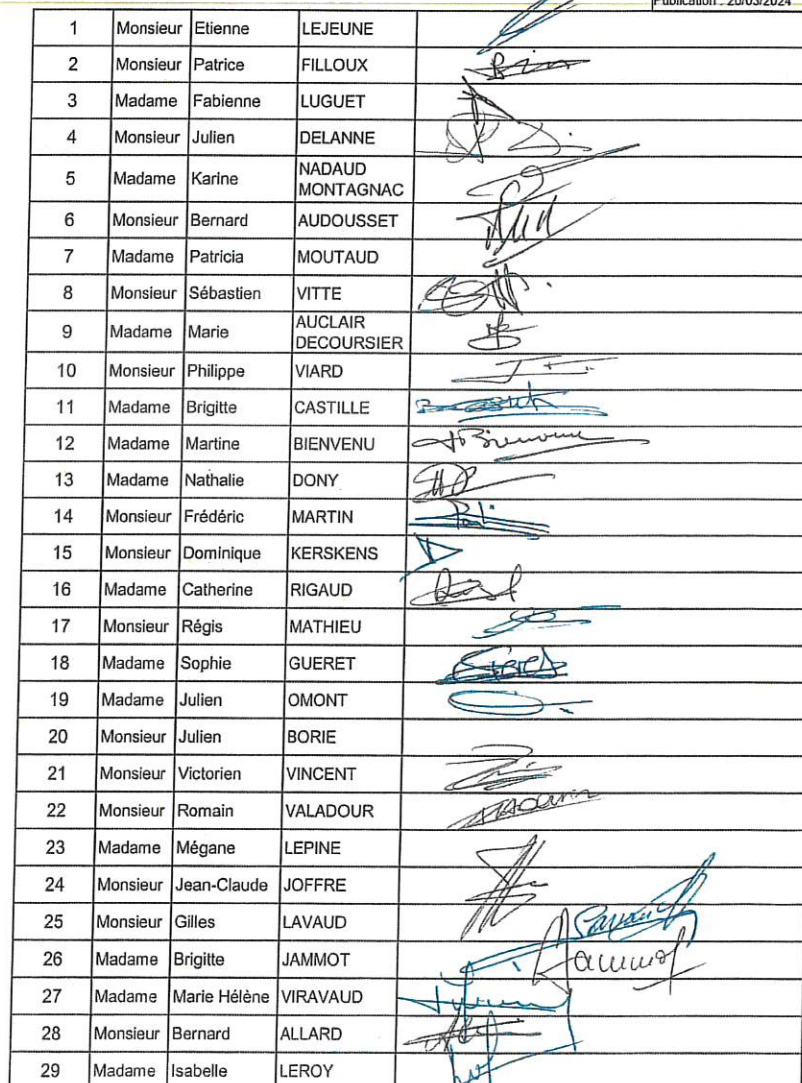 Publication : 20/03/2024
1 Monsieur Etienne LEJEUNE
2 Monsieur Patrice FILLOUX
3 Madame Fabienne LUGUET
4 Monsieur Julien DELANNE
5 Madame Karine NADAUD
MONTAGNAC
6 Monsieur Bernard AUDOUSSET
7 Madame Patricia MOUTAUD
8 Monsieur Sébastien VITTE
9 Madame Marie AUCLAIR
DECOURSIER
10 Monsieur Philippe VIARD
11 Madame Brigitte CASTILLE
12 Madame Martine BIENVENU
13 Madame Nathalie DONY
14 Monsieur Frédéric MARTIN
15 Monsieur Dominique KERSKENS
16 Madame Catherine RIGAUD
17 Monsieur Régis MATHIEU
18 Madame Sophie GUERET
19 Madame Julien OMONT
20 Monsieur Julien BORIE
21 Monsieur Victorien VINCENT
22 Monsieur Romain VALADOUR
23 Madame Mégane LEPINE
24 Monsieur Jean-Claude JOFFRE
25 Monsieur Gilles LAVAUD
26 Madame Brigitte JAMMOT
27 Madame Marie Hélène VIRAVAUD
28 Monsieur Bernard ALLARD
29 Madame Isabelle LEROY